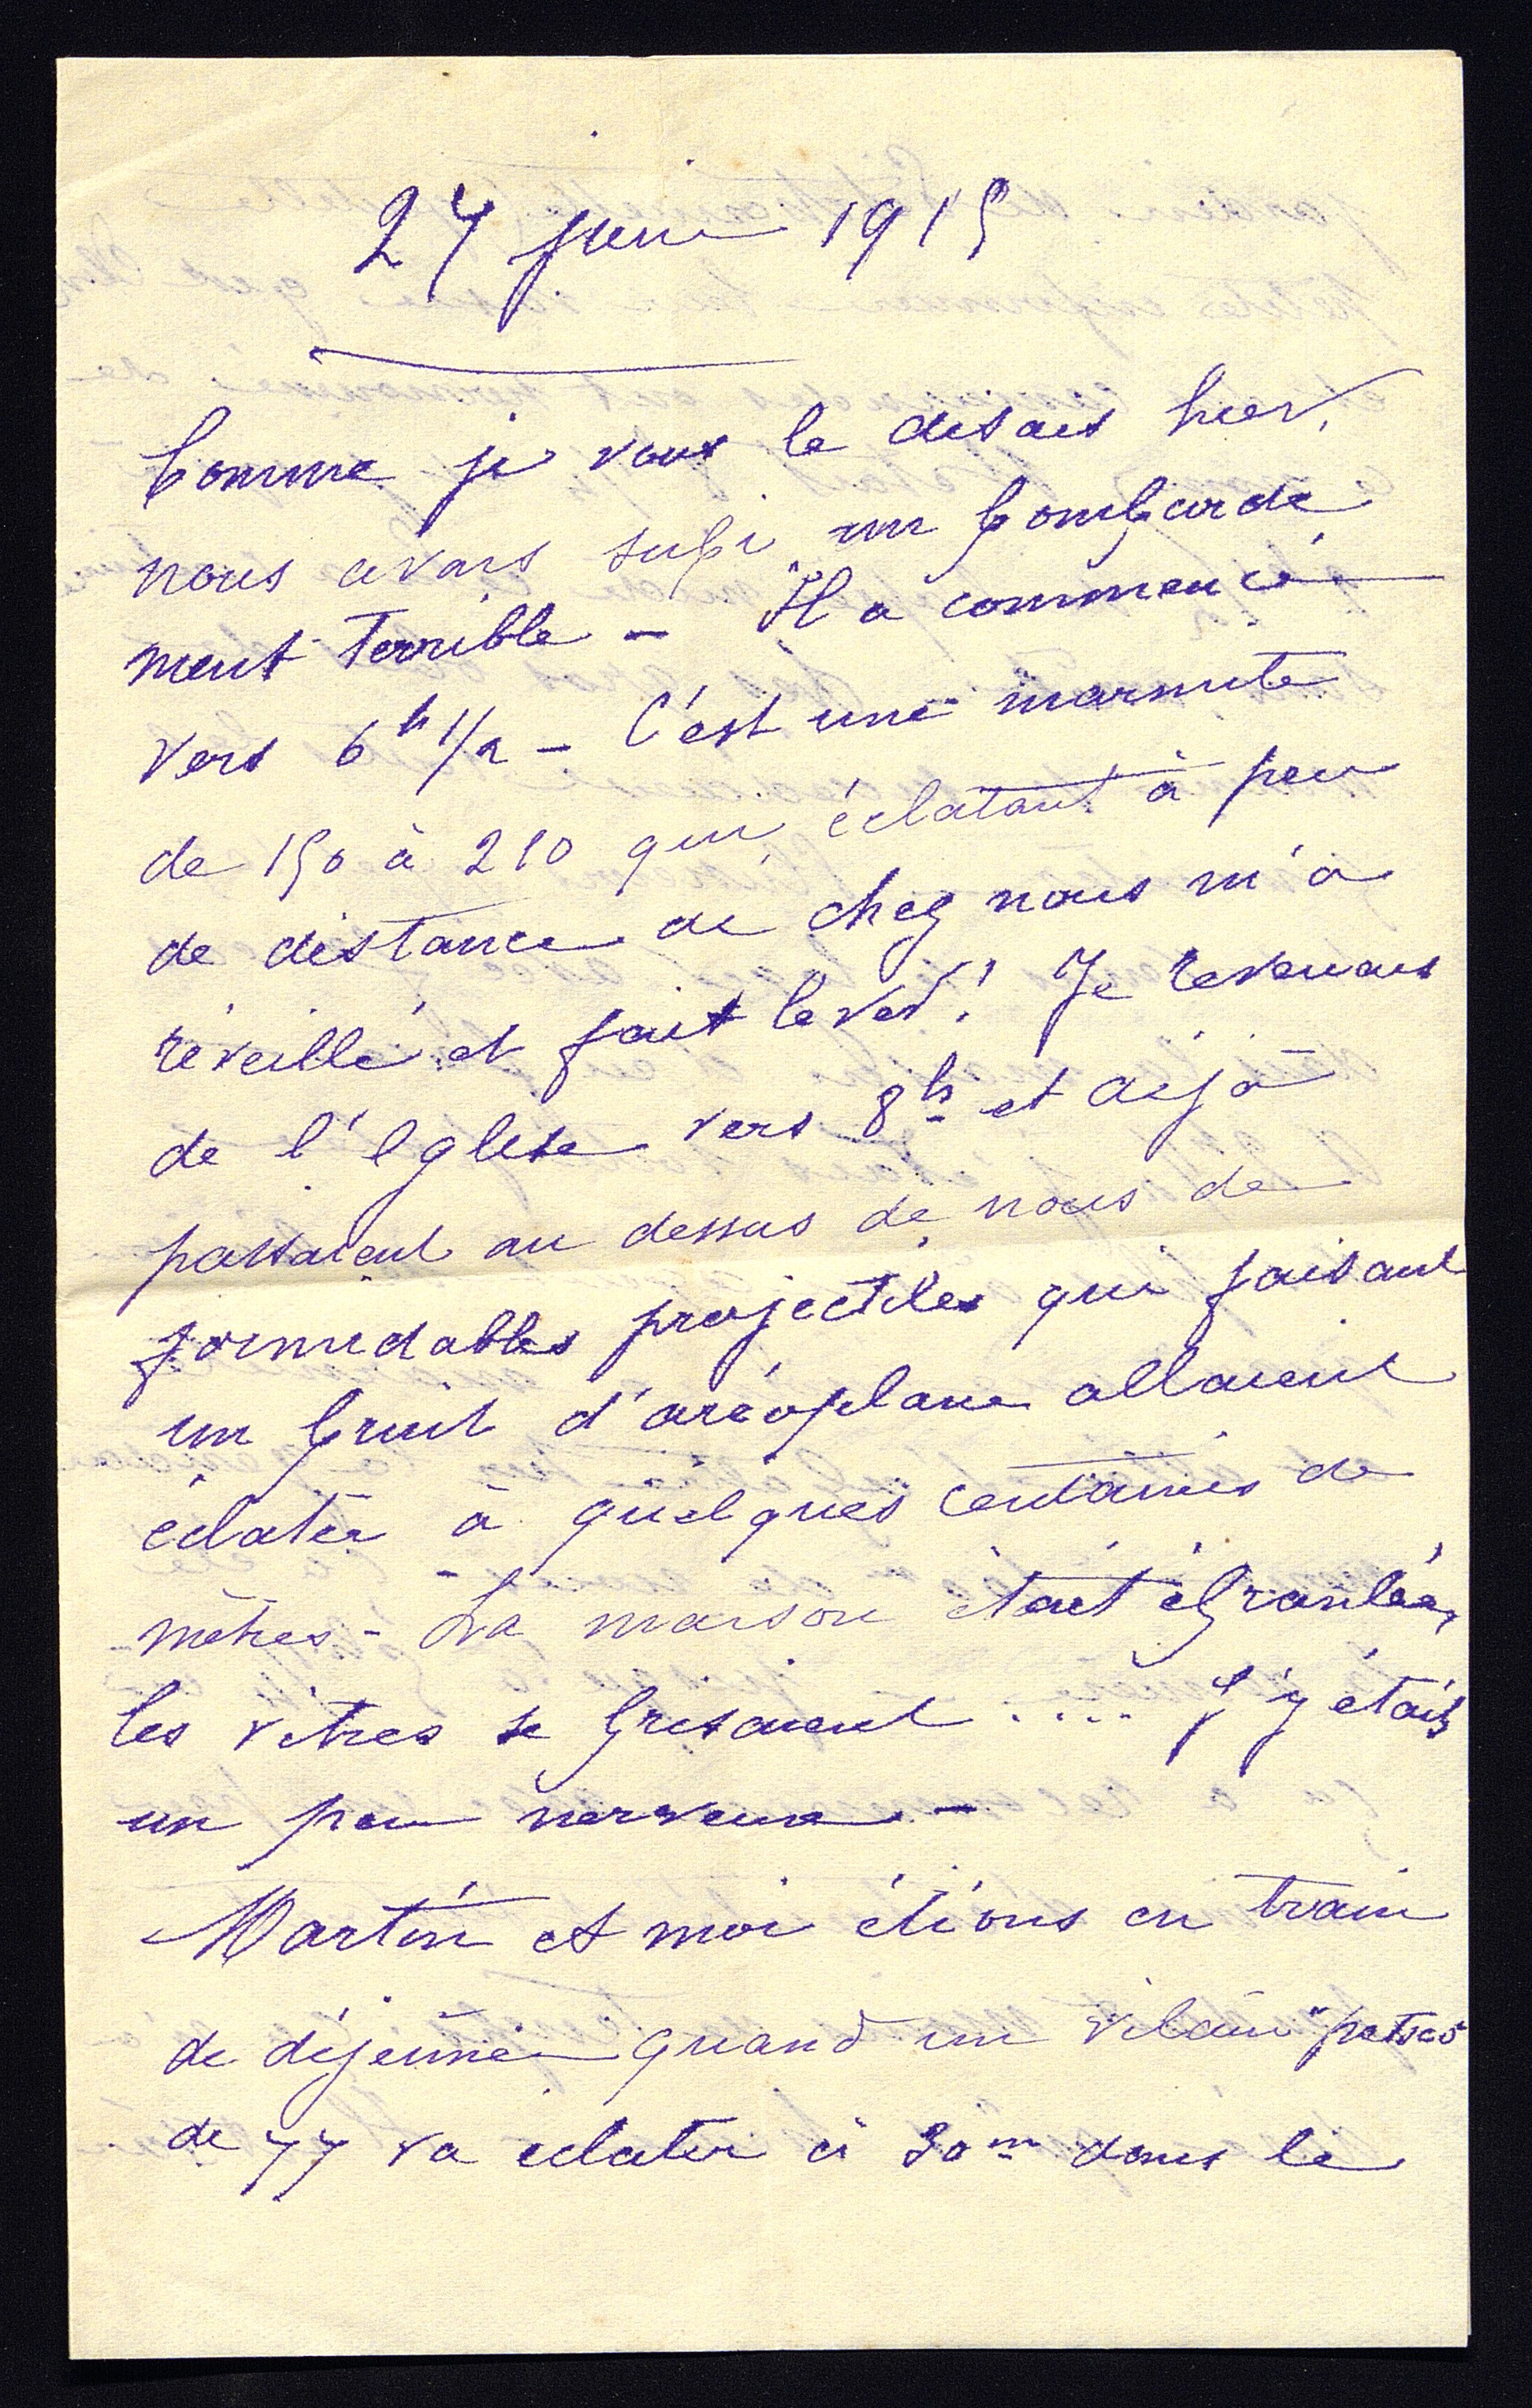 27 juin 1915
Comme je vous le disais hier,
nous avons subi un bombarde
ment terrible - Il a commencé
vers 6h 1/2 - C'est une marmite
de 150 à 210 qui éclatant à peu
de distance de chez nous m'a
réveillé et fait lever! Je revenais
de l'Eglise vers 8h et déjà
passaient au dessus de nous de
formidables projectiles qui faisant
un bruit d'aréoplane allaient
éclater à quelques centaines de
mètres - La maison était ébranlée,
les vitres se brisaient .... J'y étais
un peu nerveux -
Martin et moi étions en train
de déjeuner quand un vilain
de 77 va eclater à 30m dans le